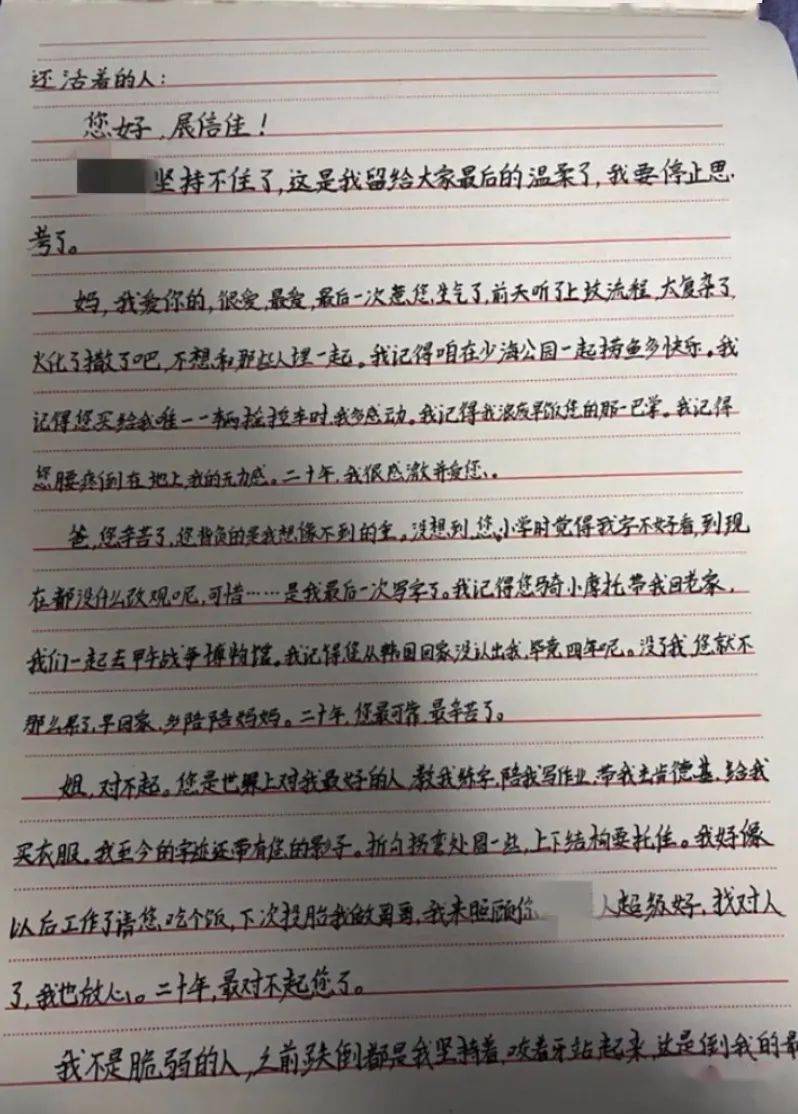 还活着的人：
您好，展信佳！
坚持不住了，这是我留给大家最后的温柔了，我要停止思
考了。
妈，我爱你的，很爱，最爱，最后一次惹您生气了，前天听了上坟流程，太复杂了，
火化了撒了吧，不想和那些人埋一起。我记得咱在少海公园一起捞鱼多快乐。我
记得您买给我唯一一辆摇控车时，我多感动。我记得我浪费早饭您的那一巴掌。我记得
您腰疼倒在地上，我的无力感。二十年，我很感激并爱您。
爸，您辛苦了，您背负的是我想像不到的重。没想到，您小学时觉得我字不好看，到现
在都没什么改观呢，可惜……是我最后一次写字了。我记得您骑小摩托带我回老家，
我们一起去甲午战争博物馆。我记得您从韩国回家没认出我，毕竟四年呢。没了我，您就不
那么累了，早回家，多陪陪妈妈。二十年，您最可靠，最辛苦了。
姐，对不起。您是世界上对我最好的人，教我练字，陪我写作业，带我去肯德基，给我
买衣服。我至今的字迹还带有您的影子。折勾拐弯处圆一些，上下结构要托住。我好像
以后工作了请您吃个饭，下次投胎我做哥哥，我来照顾你 人超级好，找对人
了，我也放心。二十年，最对不起您了。
我不是脆弱的人，之前跌倒都是我坚持着，咬着牙站起来，这是倒我的最